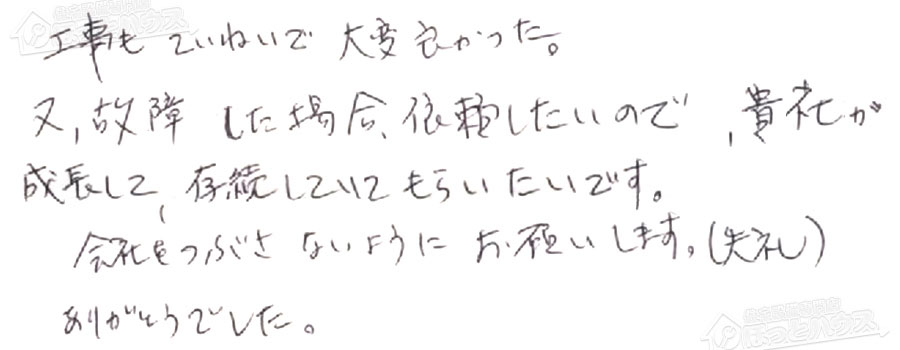 工事も ていねいで 大変良かった。
又,故障 した場合、依頼したいので,貴社が
成長して,存続していて もらいたいです。
会社をつぶさ ないように お願いします。(失礼)
ありがとうでした。